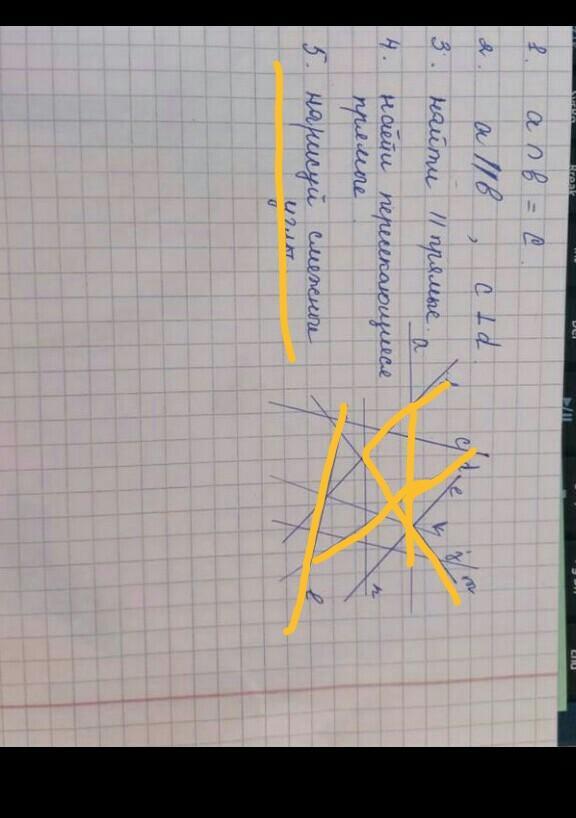 1. a ∩ b = C.
2. a || b, c ⊥ d.
3. найти || прямые.
4. найти пересекающиеся
прямые.
5. нарисуй смежные
углы
a
c
d
e
k
m
n